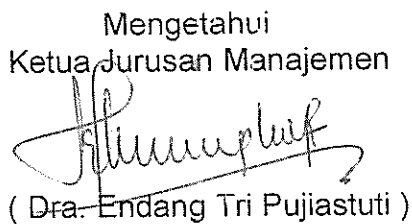 Mengetahui
Ketua Jurusan Manajemen
( Dra. Endang Tri Pujiastuti )